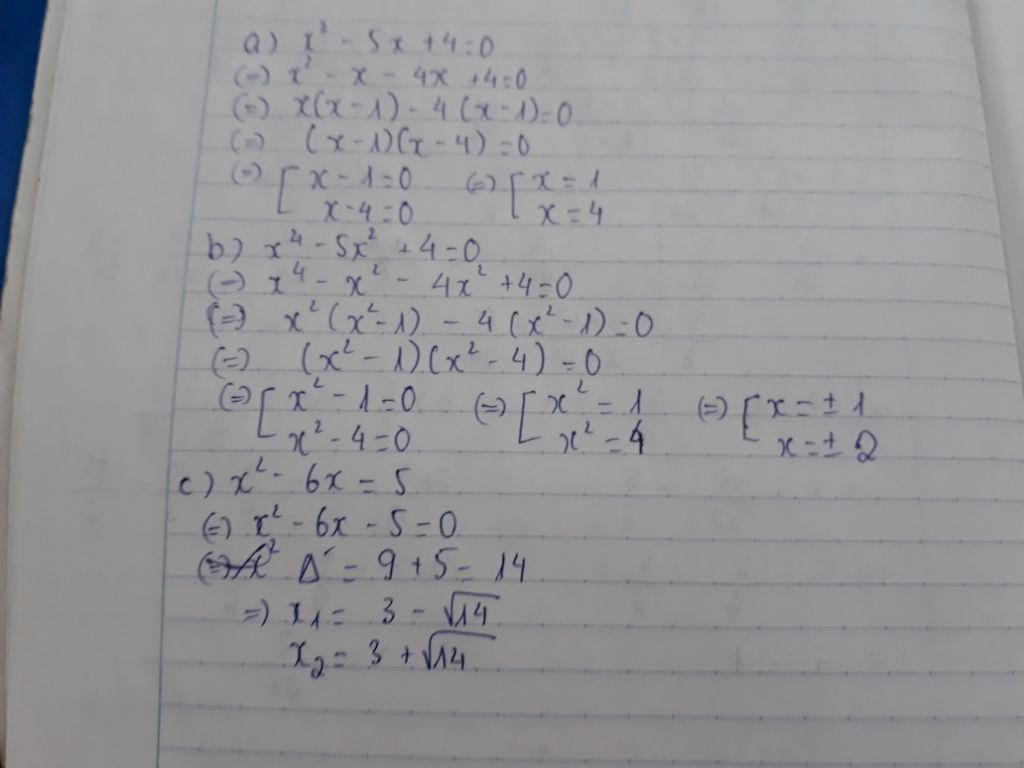 a) x² - 5x + 4 = 0
(=) x² - x - 4x + 4 = 0
(=) x(x - 1) - 4(x - 1) = 0
(=) (x - 1)(x - 4) = 0
(=) [ x - 1 = 0 (=) [ x = 1
x - 4 = 0 x = 4
b) x⁴ - 5x² + 4 = 0
(=) x⁴ - x² - 4x² + 4 = 0
(=) x²(x² - 1) - 4(x² - 1) = 0
(=) (x² - 1)(x² - 4) = 0
(=) [ x² - 1 = 0 (=) [ x² = 1 (=) [ x = ± 1
x² - 4 = 0 x² = 4 x = ± 2
c) x² - 6x = 5
(=) x² - 6x - 5 = 0
Δ' = 9 + 5 = 14
=) x₁ = 3 - √14
x₂ = 3 + √14